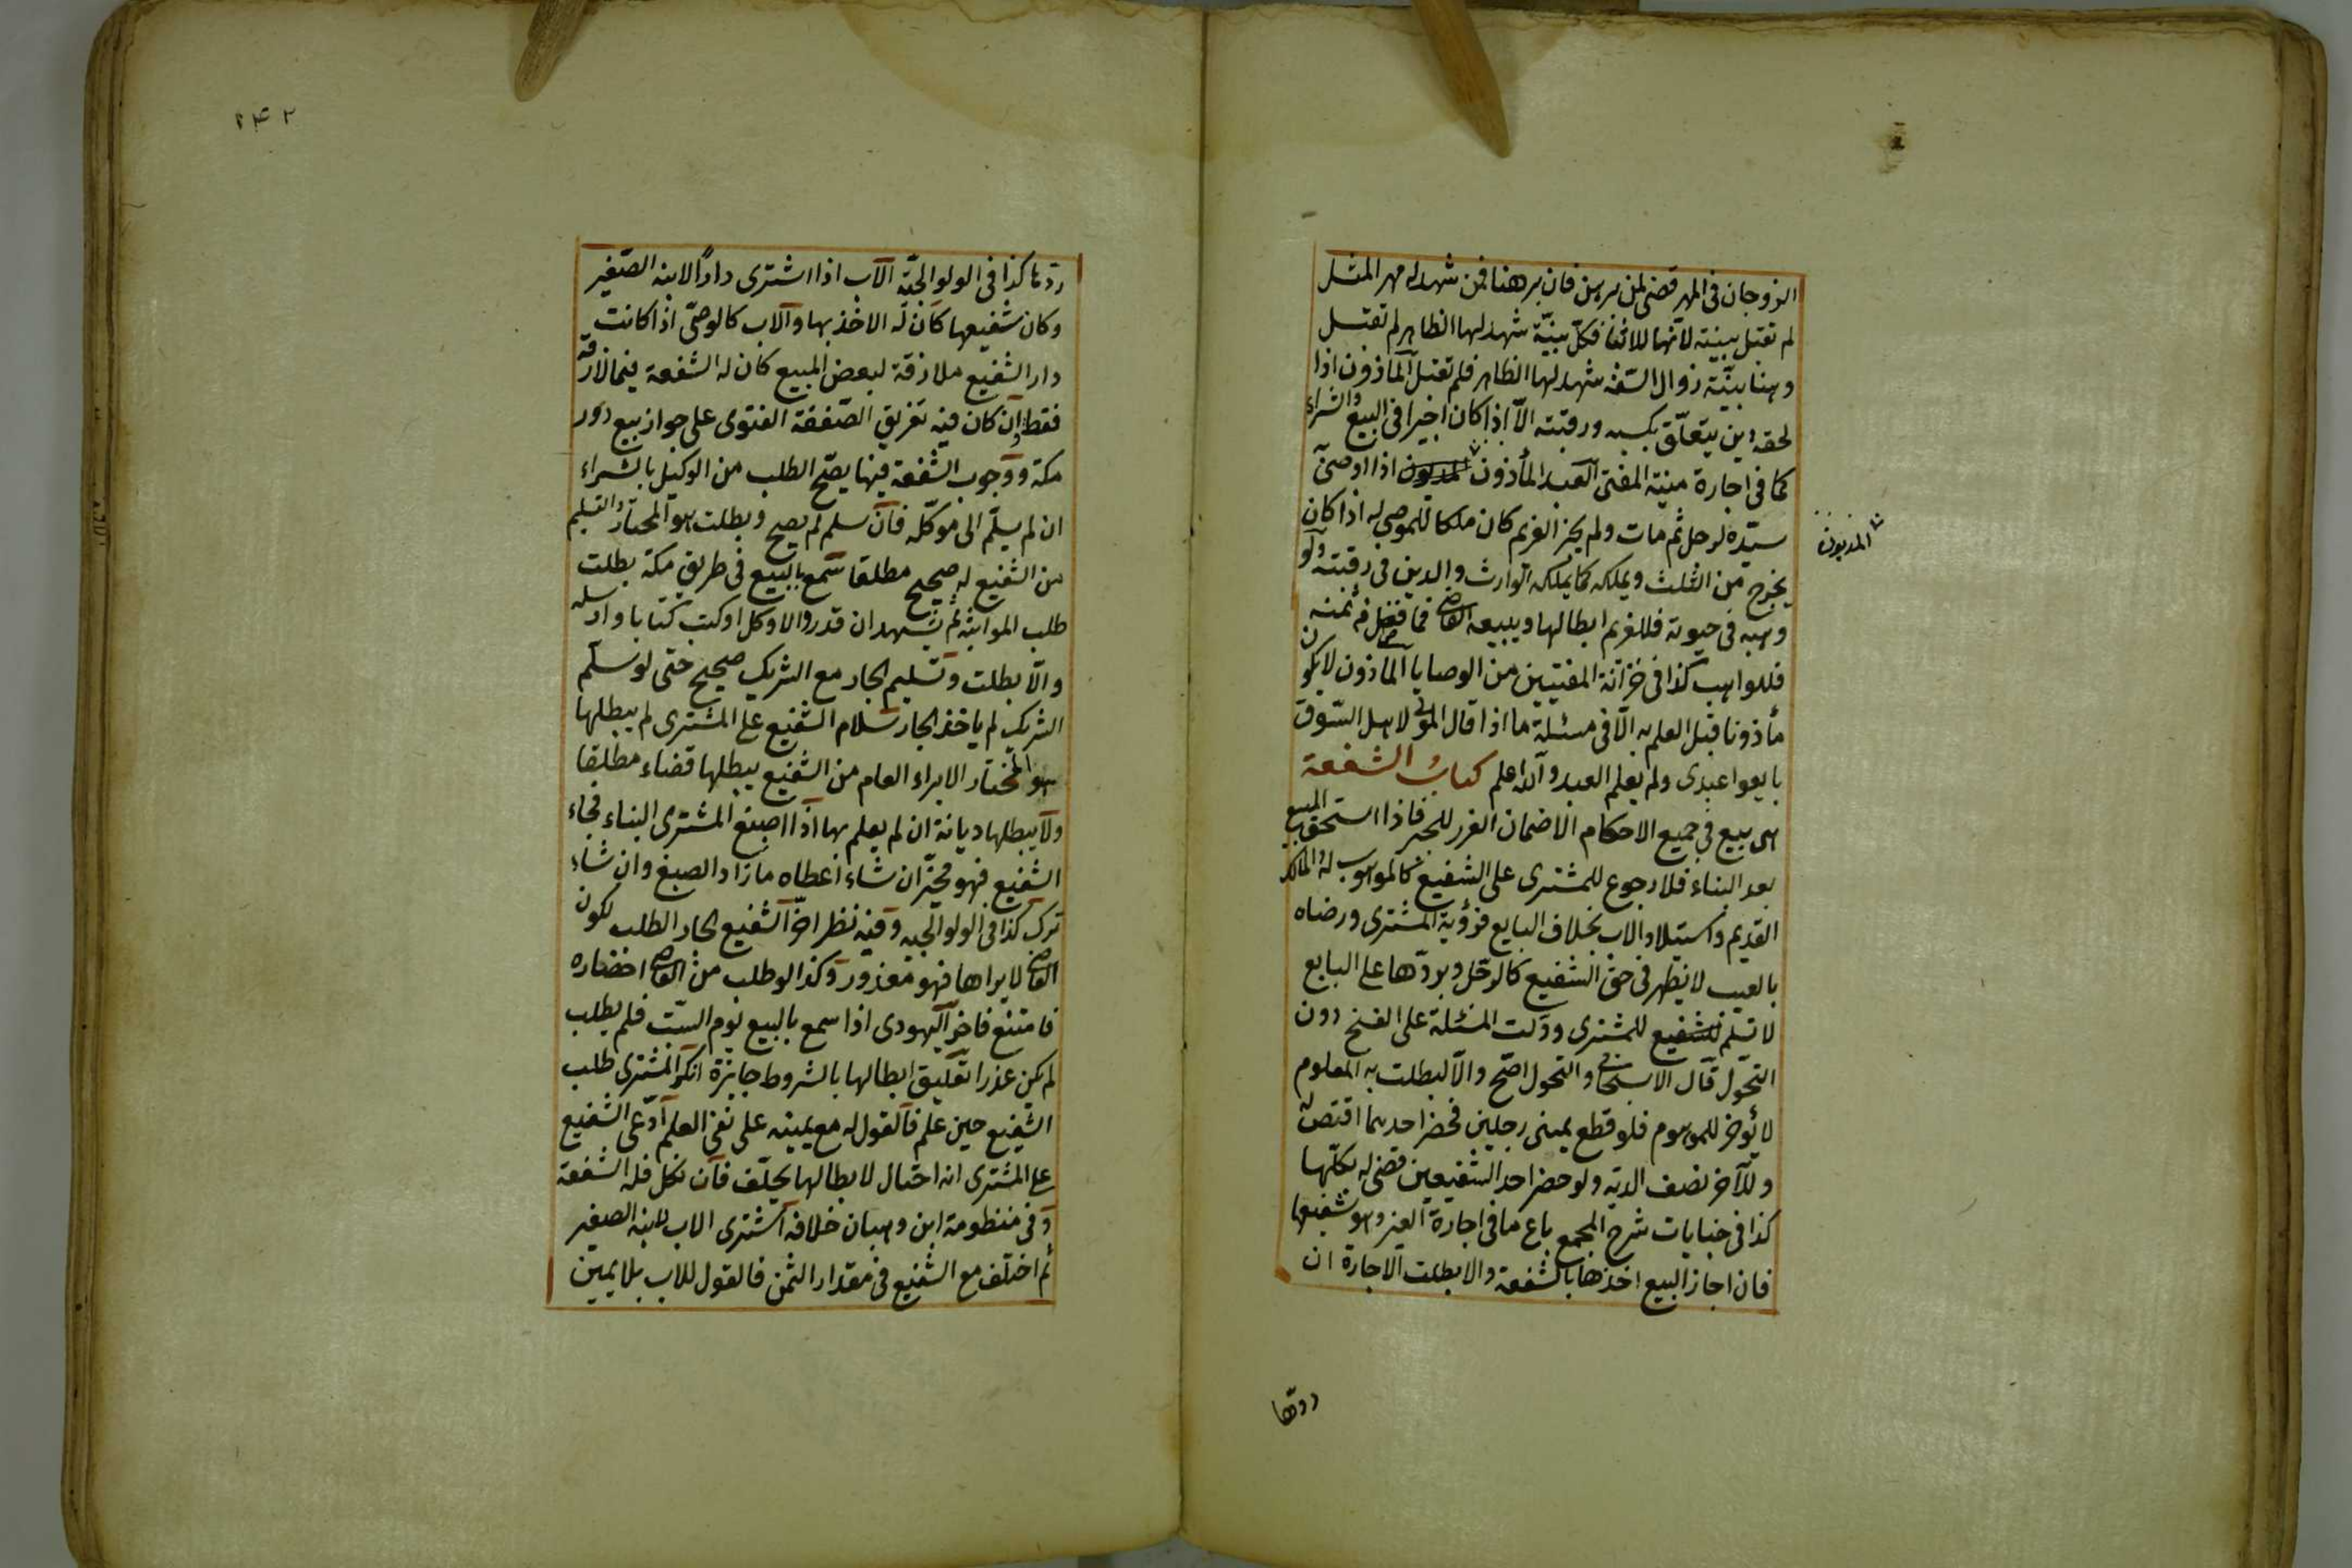 الزوجان فى المهر قضى لمن برهن فان برهنا فمن شهد له مهر المثل
لم تقبل بينته لانها للاثبات فكل بينة شهد لها الظاهر لم تقبل
وهنا بينة زوال السفه شهد لها الظاهر فلم تقبل المأذون اذا
لحقه دين يتعلق بكسبه ورقبته الا اذا كان اجيرا فى البيع والشراء
كما فى اجارة منية المفتى العبد المأذون المديون اذا اوصى
المديون
سيده لرجل ثم مات ولم يجز الغريم كان ملكا للموصى له اذا كان
يخرج من الثلث ويملكه كما يملكه الوارث والدين فى رقبته ولو
وهبه فى حيوته فللغريم ابطالها ويبيعه القاضى فما فضل من ثمنه
فللواهب كذا فى خزانة المفتيين من الوصايا المأذون لا يكون
مأذونا قبل العلم به الا فى مسئلة ما اذا قال المولى لاهل السوق
بايعوا عبدى ولم يعلم العبد والله اعلم كتاب الشفعة
هى بيع فى جميع الاحكام الا ضمان الغرر للجبر فاذا استحق المبيع
بعد البناء فلا رجوع للمشترى على الشفيع كالموهوب له والمالك
القديم واستيلاد الاب بخلاف البايع فرؤية المشترى ورضاه
بالعيب لا يظهر فى حق الشفيع كالاجل ويردها على البايع
لا تسلم للشفيع للمشترى ودلت المسئلة على الفسخ دون
التحول قال الاسبيجابى والتحول اصح والا لبطلت به المعلوم
لا يؤخر للموهوم فلو قطع يمينى رجلين فحضر احدهما اقتص له
وللآخر نصف الدية ولو حضر احد الشفيعين قضى له بكلها
كذا فى جنايات شرح المجمع باع ما فى اجارة الغير وهو شفيعها
فان اجاز البيع اخذها بالشفعة والا بطلت الاجارة ان
ردها
٢٤٢
ردها كذا فى الولوالجية الاب اذا اشترى دارا لابنه الصغير
وكان شفيعها كان له الاخذ بها والاب كالوصى اذا كانت
دار الشفيع ملازقة لبعض المبيع كان له الشفعة فيما لازقه
فقط وان كان فيه تفريق الصفقة الفتوى على جواز بيع دور
مكة ووجوب الشفعة فيها يصح الطلب من الوكيل بالشراء
ان لم يسلم الى موكله فان سلم لم يصح وبطلت هو المختار والتسليم
من الشفيع له صحيح مطلقا سمع بالبيع فى طريق مكة بطلت
طلب المواثبة ثم يشهد ان قدر والا وكل او كتب كتابا وارسله
والا بطلت وتسليم الجار مع الشريك صحيح حتى لو سلم
الشريك لم يأخذ الجار سلام الشفيع على المشترى لم يبطلها
هو المختار الابراء العام من الشفيع يبطلها قضاء مطلقا
ولا يبطلها ديانة ان لم يعلم بها اذا صبغ المشترى البناء فجاء
الشفيع فهو مخير ان شاء اعطاه ما زاد الصبغ وان شاء
ترك كذا فى الولوالجيه وفيه نظر اخر الشفيع الجار الطلب لكون
القاضى لا يراها فهو معذور وكذا لو طلب من القاضى احضاره
فامتنع فاخر اليهودى اذا سمع بالبيع يوم السبت فلم يطلب
لم يكن عذرا تعليق ابطالها بالشروط جايزة انكر المشترى طلب
الشفيع حين علم فالقول له مع يمينه على نفى العلم ادعى الشفيع
على المشترى انه احتال لابطالها يحلف فان نكل فله الشفعة
وفى منظومة ابن وهبان خلافه اشترى الاب لابنه الصغير
ثم اختلف مع الشفيع فى مقدار الثمن فالقول للاب بلا يمين